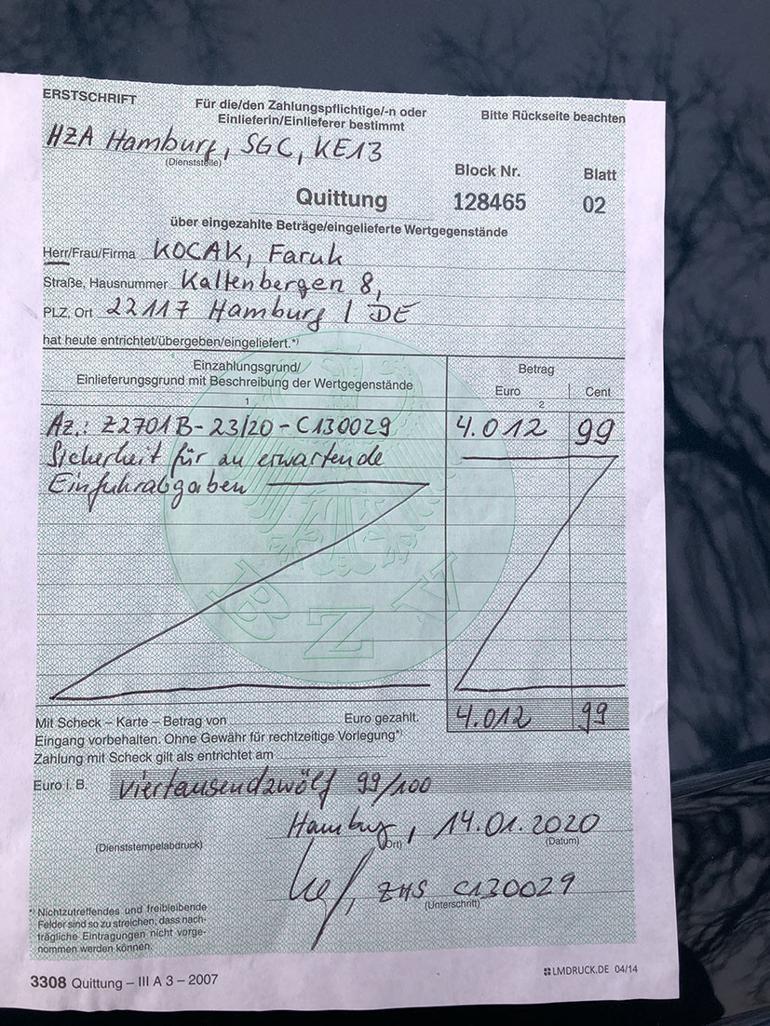 ERSTSCHRIFT
Für die/den Zahlungspflichtige/-n oder
Einlieferin/Einlieferer bestimmt
Bitte Rückseite beachten
HZA Hamburg, SGC, KE13
(Dienststelle)
Block Nr.
Blatt
Quittung
128465
02
über eingezahlte Beträge/eingelieferte Wertgegenstände
Herr/Frau/Firma KOCAK, Faruk
Straße, Hausnummer Kaltenbergen 8,
PLZ, Ort 22117 Hamburg / DE
hat heute entrichtet/übergeben/eingeliefert.*)
Einzahlungsgrund/
Einlieferungsgrund mit Beschreibung der Wertgegenstände
Betrag
Euro
Cent
1
2
Az.: Z2701B-23/20-C130029 4.012 99
Sicherheit für zu erwartende
Einfuhrabgaben
BZV
Mit Scheck – Karte – Betrag von Euro gezahlt. 4.012 99
Eingang vorbehalten. Ohne Gewähr für rechtzeitige Vorlegung*)
Zahlung mit Scheck gilt als entrichtet am
Euro i. B. viertausendzwölf 99/100
Hamburg, 14.01.2020
(Dienststempelabdruck)
(Ort)
(Datum)
ZHS C130029
(Unterschrift)
*) Nichtzutreffendes und freibleibende
Felder sind so zu streichen, dass nach-
trägliche Eintragungen nicht vorge-
nommen werden können.
3308 Quittung – III A 3 – 2007
LMDRUCK.DE 04/14